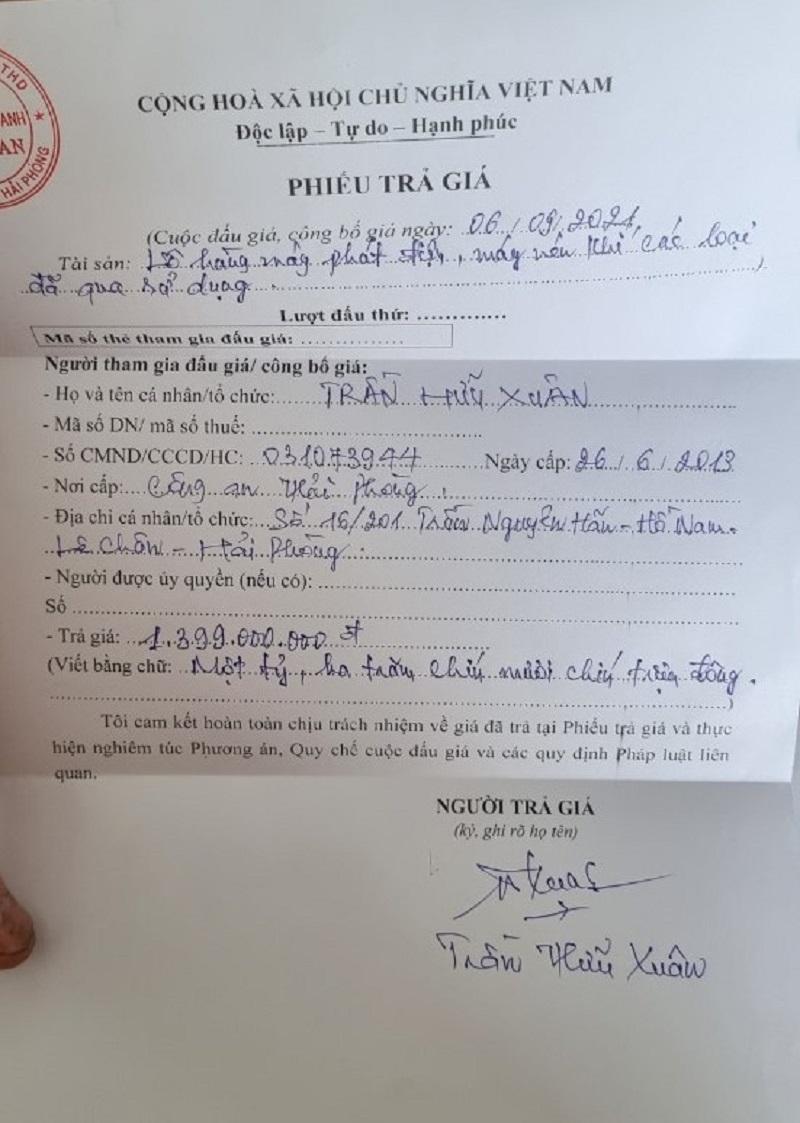 THD
ANH
AN
HẢI PHÒNG
CỘNG HOÀ XÃ HỘI CHỦ NGHĨA VIỆT NAM
Độc lập – Tự do – Hạnh phúc
PHIẾU TRẢ GIÁ
(Cuộc đấu giá, công bố giá ngày: 06/09/2021
Tài sản: Lô hàng máy phát điện, máy nén khí các loại
đã qua sử dụng )
Lượt đấu thứ: .............
Mã số thẻ tham gia đấu giá: ...............
Người tham gia đấu giá/ công bố giá:
- Họ và tên cá nhân/tổ chức: TRẦN HỮU XUÂN
- Mã số DN/ mã số thuế: ...............
- Số CMND/CCCD/HC: 031073944 Ngày cấp: 26/6/2013
- Nơi cấp: Công an Hải Phòng
- Địa chỉ cá nhân/tổ chức: Số 16/201 Trần Nguyên Hãn - Hồ Nam -
Lê Chân - Hải Phòng
- Người được ủy quyền (nếu có): ...............
Số ...............
- Trả giá: 1.399.000.000 đ
(Viết bằng chữ: Một tỷ, ba trăm chín mươi chín triệu đồng.
...............)
Tôi cam kết hoàn toàn chịu trách nhiệm về giá đã trả tại Phiếu trả giá và thực
hiện nghiêm túc Phương án, Quy chế cuộc đấu giá và các quy định Pháp luật liên
quan.
NGƯỜI TRẢ GIÁ
(ký, ghi rõ họ tên)
Trần Hữu Xuân